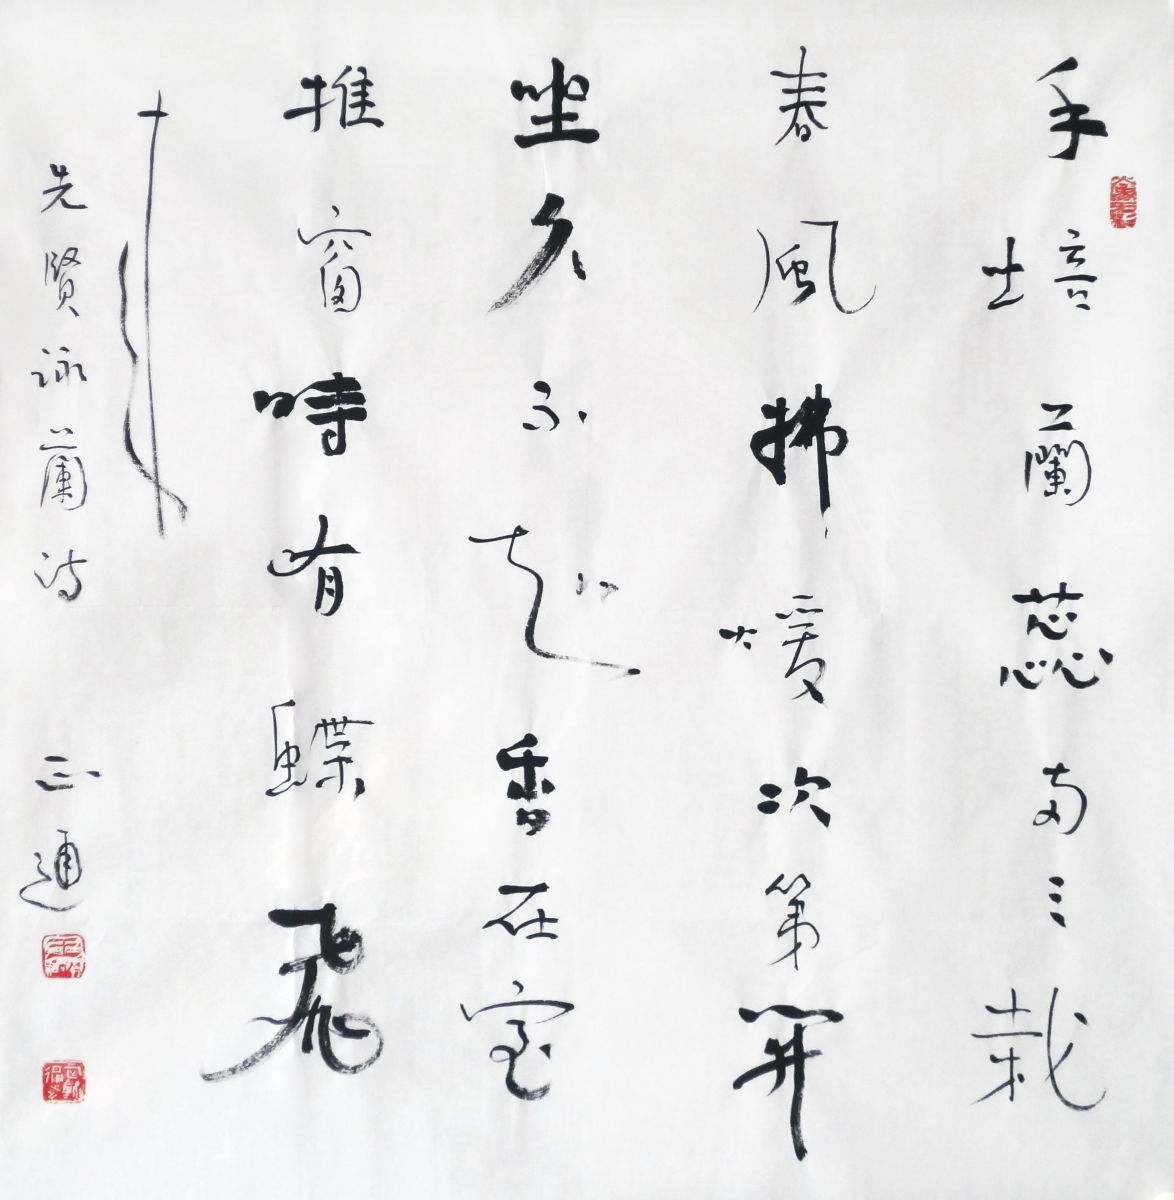 手培蘭蕊两三栽
春風拂暖次第開
坐久不知香在室
推窗時有蝶飛
来
先賢詠蘭诗 正通